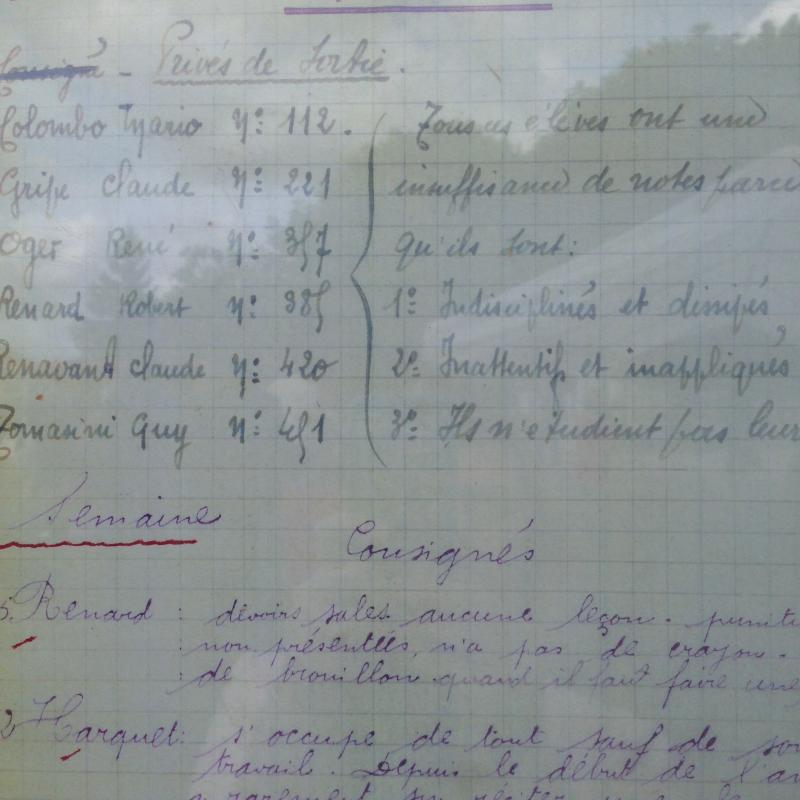 Consigné - Privés de Sortie.
Colombo Mario N: 112.
Gripe Claude N: 221
Oger René N: 357
Renard Robert N: 385
Renavant Claude N: 420
Tomasini Guy N: 451
Tous ces élèves ont une
insuffisance de notes parce
qu'ils sont:
1º Indisciplinés et dissipés
2º Inattentifs et inappliqués
3º Ils n'étudient pas leur
Semaine
Consignés
5. Renard : devoirs sales. aucune leçon. punit
: non présentées, n'a pas de crayon.
: de brouillon quand il faut faire une
2 Harquet: s'occupe de tout sauf de son
travail. Depuis le début de l'an
a rarement su réciter